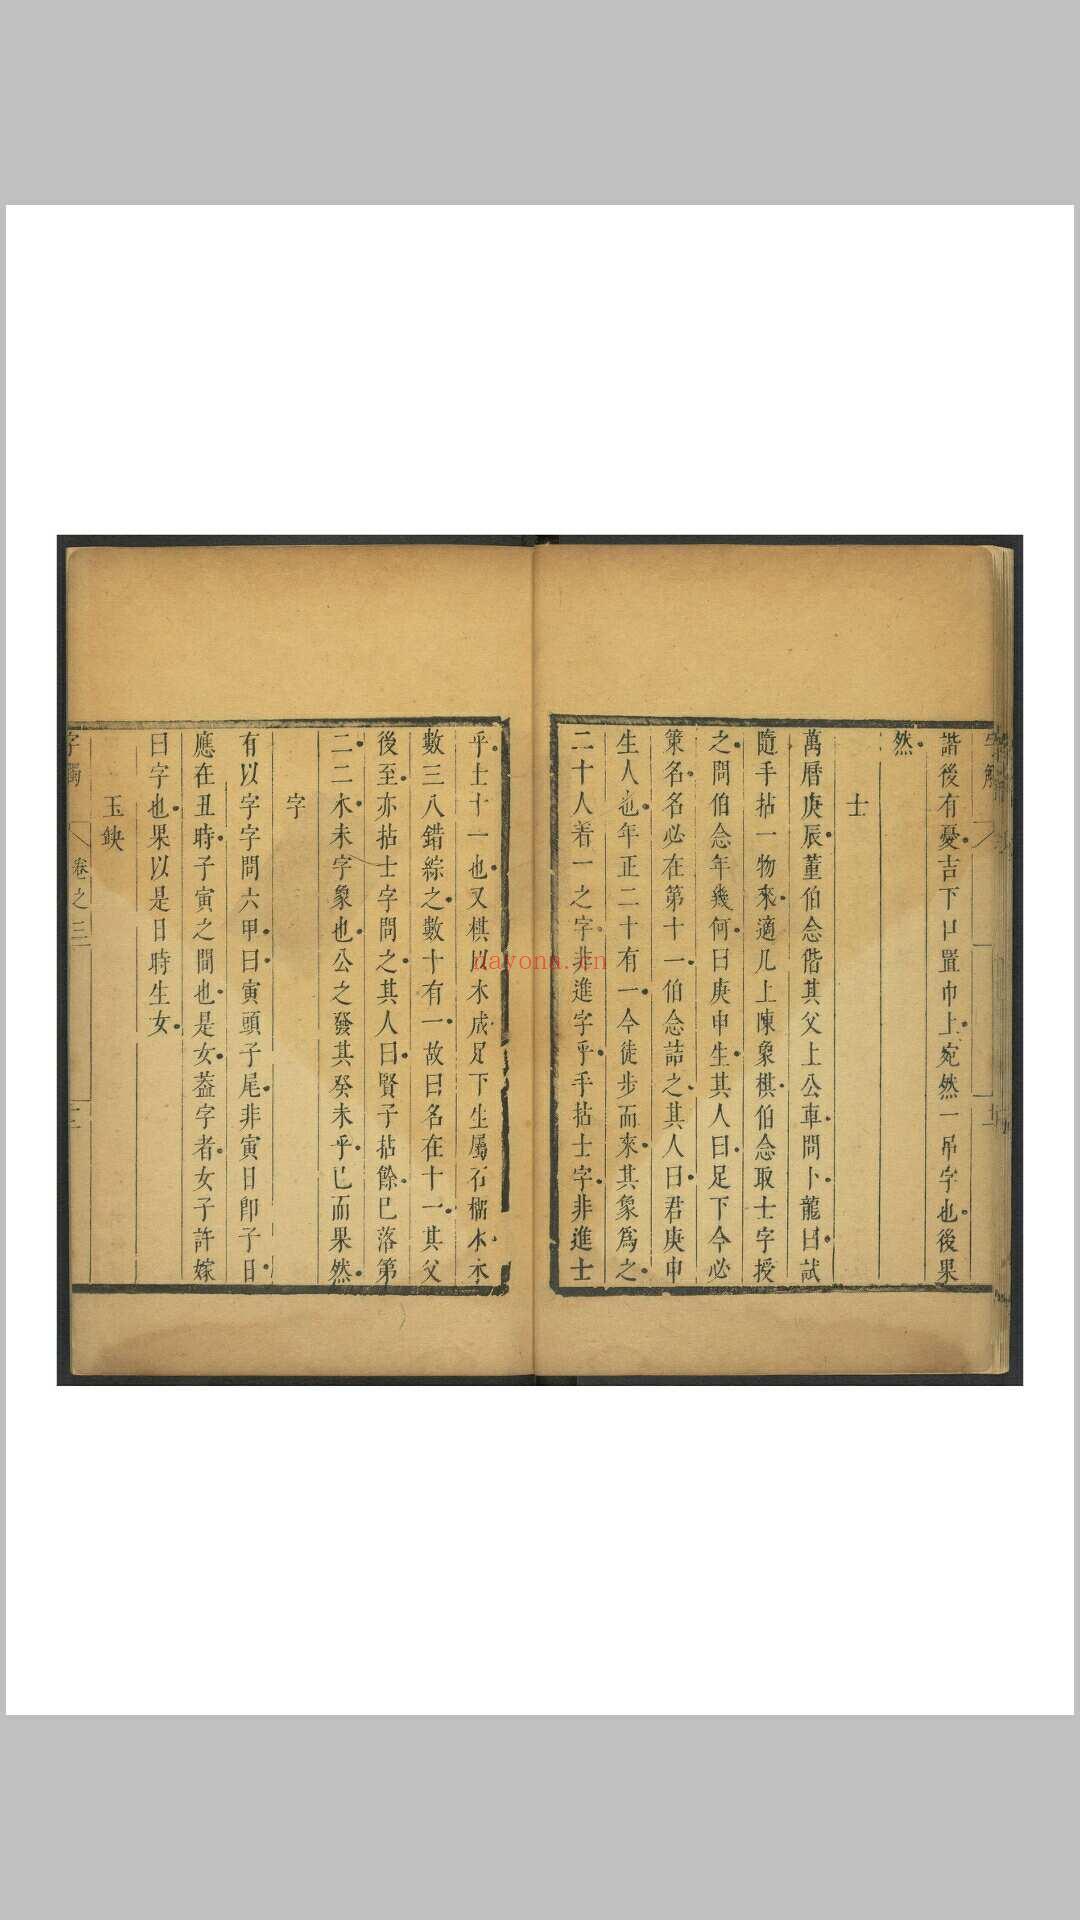 諧後有憂吉下口置巾上宛然一吊字也後果
然
士
萬曆庚辰董伯念偕其父上公車問卜龍曰試
隨手拈一物來適几上陳象棋伯念取士字授
之問伯念年幾何曰庚申生其人曰足下今必
策名名必在第十一伯念詰之其人曰君庚申
生人也年正二十有一今徒步而來其象爲之
二十人着一之字非進字乎手拈士字非進士
乎士十一也又棋以木成足下生屬石榴木木
數三八錯綜之數十有一故曰名在十一其父
後至亦拈士字問之其人曰賢子拈餘已落第
二二木未字象也公之發其癸未乎已而果然
字
有以字字問六甲曰寅頭子尾非寅日卽子日
應在丑時子寅之間也是女葢字者女子許嫁
曰字也果以是日時生女
玉鈌
字觸
卷之三
nayona.cn